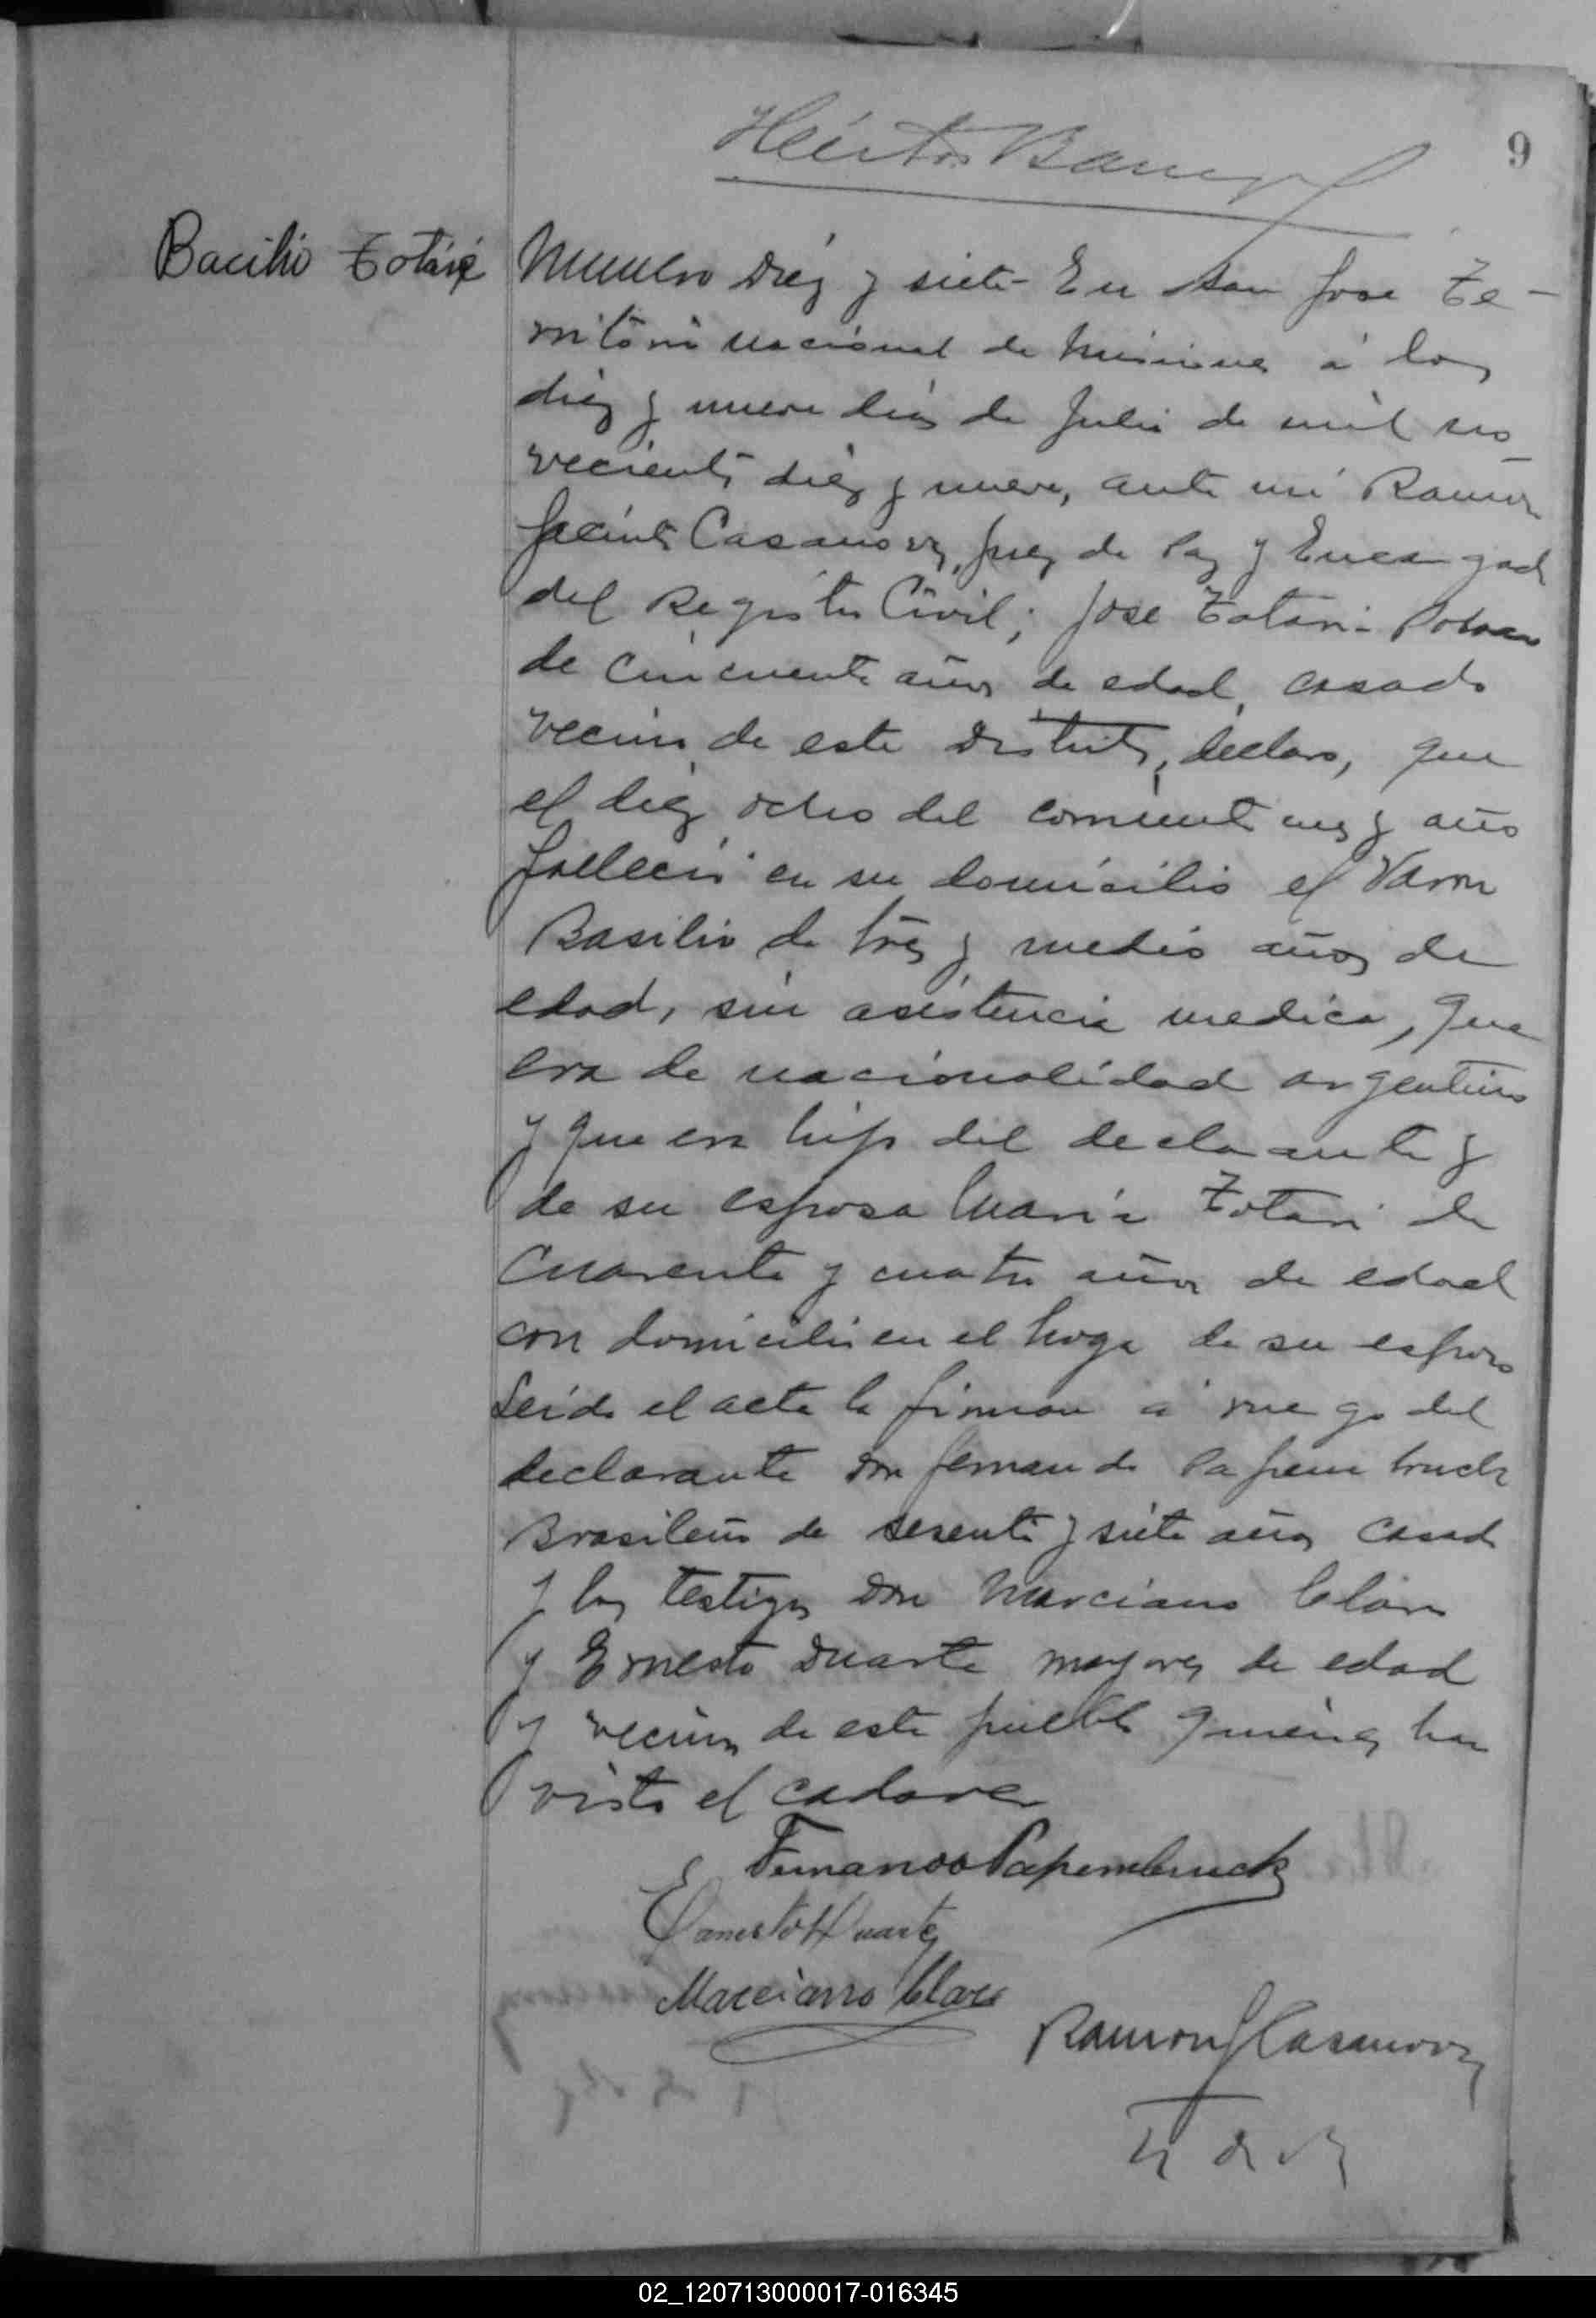 Héctor Baney
9
Bacilio Totari
Numero diez y siete - En San Jose Te-
rritorio nacional de Misiones á los
diez y nueve dias de Julio de mil no-
vecientos diez y nueve, ante mi Ramon
Jacinto Casanova, Juez de Paz y Encargado
del Registro Civil; Jose Totari - Polaco
de cincuenta años de edad, casado
vecino de este Distrito, declaro, que
el diez ocho del corriente mes y año
fallecio en su domicilio el Varon
Basilio de tres y medio años de
edad, sin asistencia medica, que
era de nacionalidad argentino
y que era hijo del declarante y
de su esposa Maria Totari de
Cuarenta y cuatro años de edad
con domicilio en el hogar de su esposo
Leida el acta la firman á ruego del
declarante Don Fernando Papembruck
Brasileño de sesenta y siete años casado
y los testigos Don Marciano Claro
y Ernesto Duarte mayores de edad
y vecinos de este pueblo quienes han
visto el cadaver
Fernando Papembruck
Ernesto Duarte
Marciano Claro
Ramon J Casanova
02_120713000017-016345